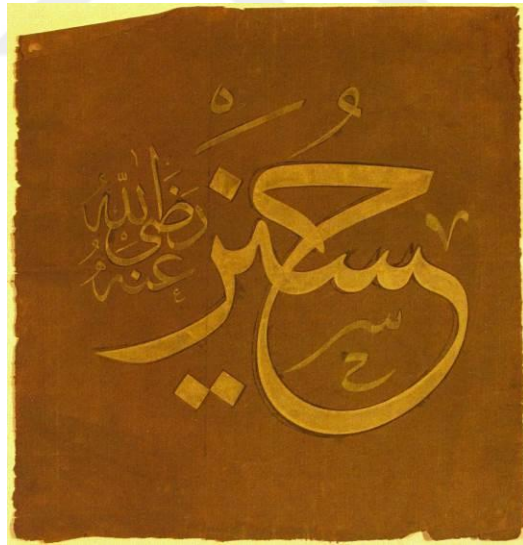 حُسَيْن
رَضِىَ اللّٰهُ عَنْهُ